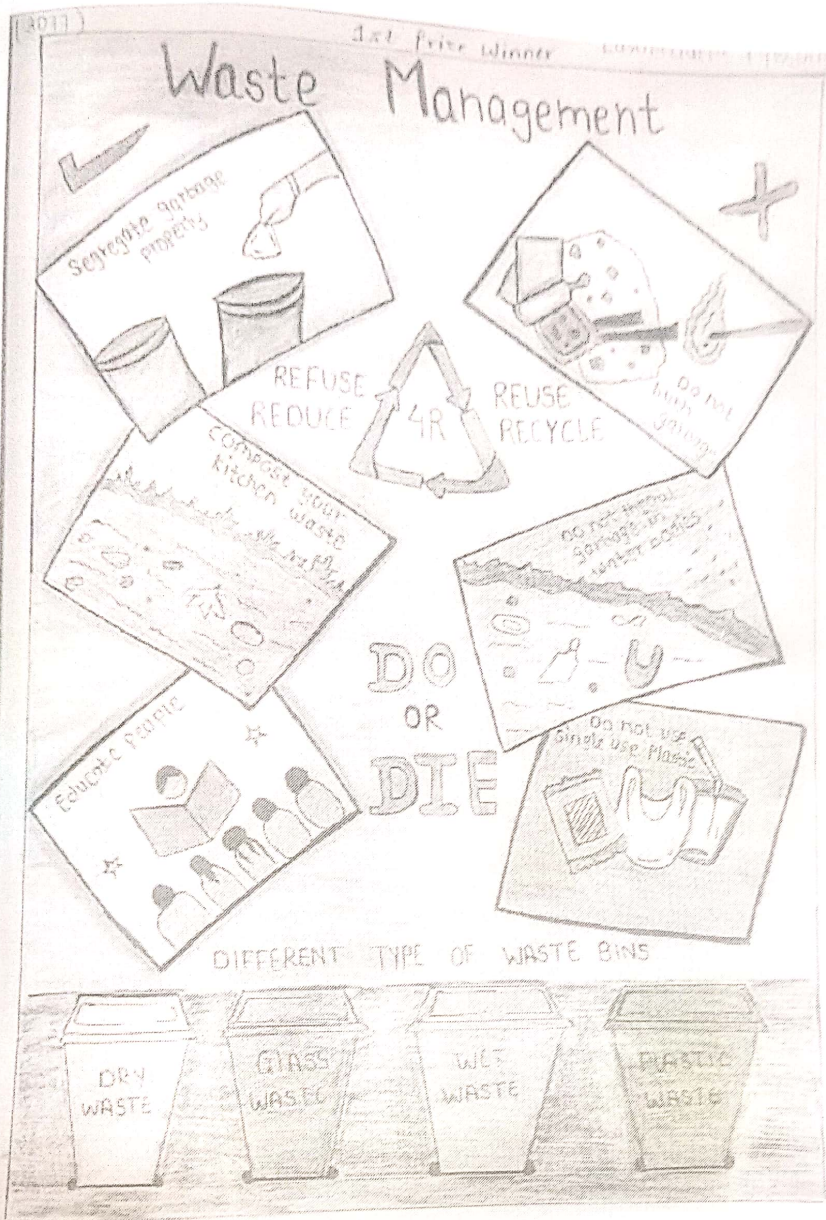 (3077)
1st Prize Winner
Waste Management
Segregate garbage
properly
Do not
burn
garbage
REFUSE
REDUCE
4R
REUSE
RECYCLE
Compost your
kitchen waste
Do not throw
garbage in
water bodies
DO
OR
DIE
Educate people
Do not use
Single use Plastic
DIFFERENT TYPE OF WASTE BINS
DRY
WASTE
GLASS
WASTE
WET
WASTE
PLASTIC
WASTE